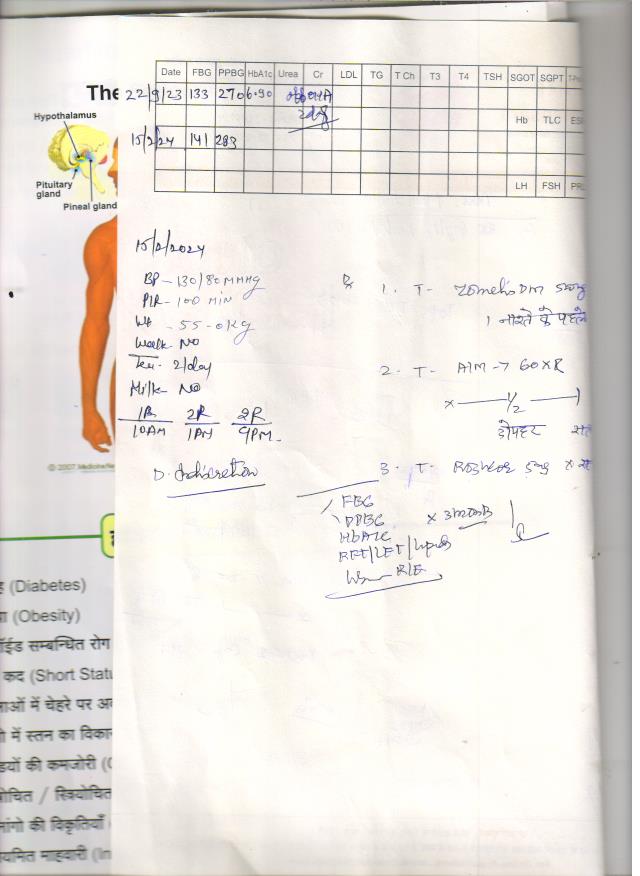 The
Hypothalamus
Pituitary
gland
Pineal gland
© 2007 MedicineNe
(Diabetes)
(Obesity)
ॉईड सम्बन्धित रोग
कद (Short Statu
ाओं में चेहरे पर अ
ो में स्तन का विका
डयों की कमजोरी (
ोचित / स्त्रियोचित
नांगो की विकृतियाँ
यमित माहवारी (In
Date FBG PPBG HbA1c Urea Cr LDL TG T Ch T3 T4 TSH SGOT SGPT
22/9/23 133 270 6.90
Hb TLC ES
15/2/24 141 283
LH FSH PR
15/2/2024
BP - 130/80 MMHg
P/R - 100 MIN
Wt - 55-0 Kg
Walk - NO
Tea - 2/day
Milk - NO
1B 2R 2R
10AM 1PM 9PM
D. Indiscretion
Rx
1. T- Zomelis DM
1 नाश्ते के पहले
2. T- 60XR
x 1/2
दोपहर
3. T-
FBG
PPBG
HbA1C
x 3
RFT/LFT/Lipids
R/E